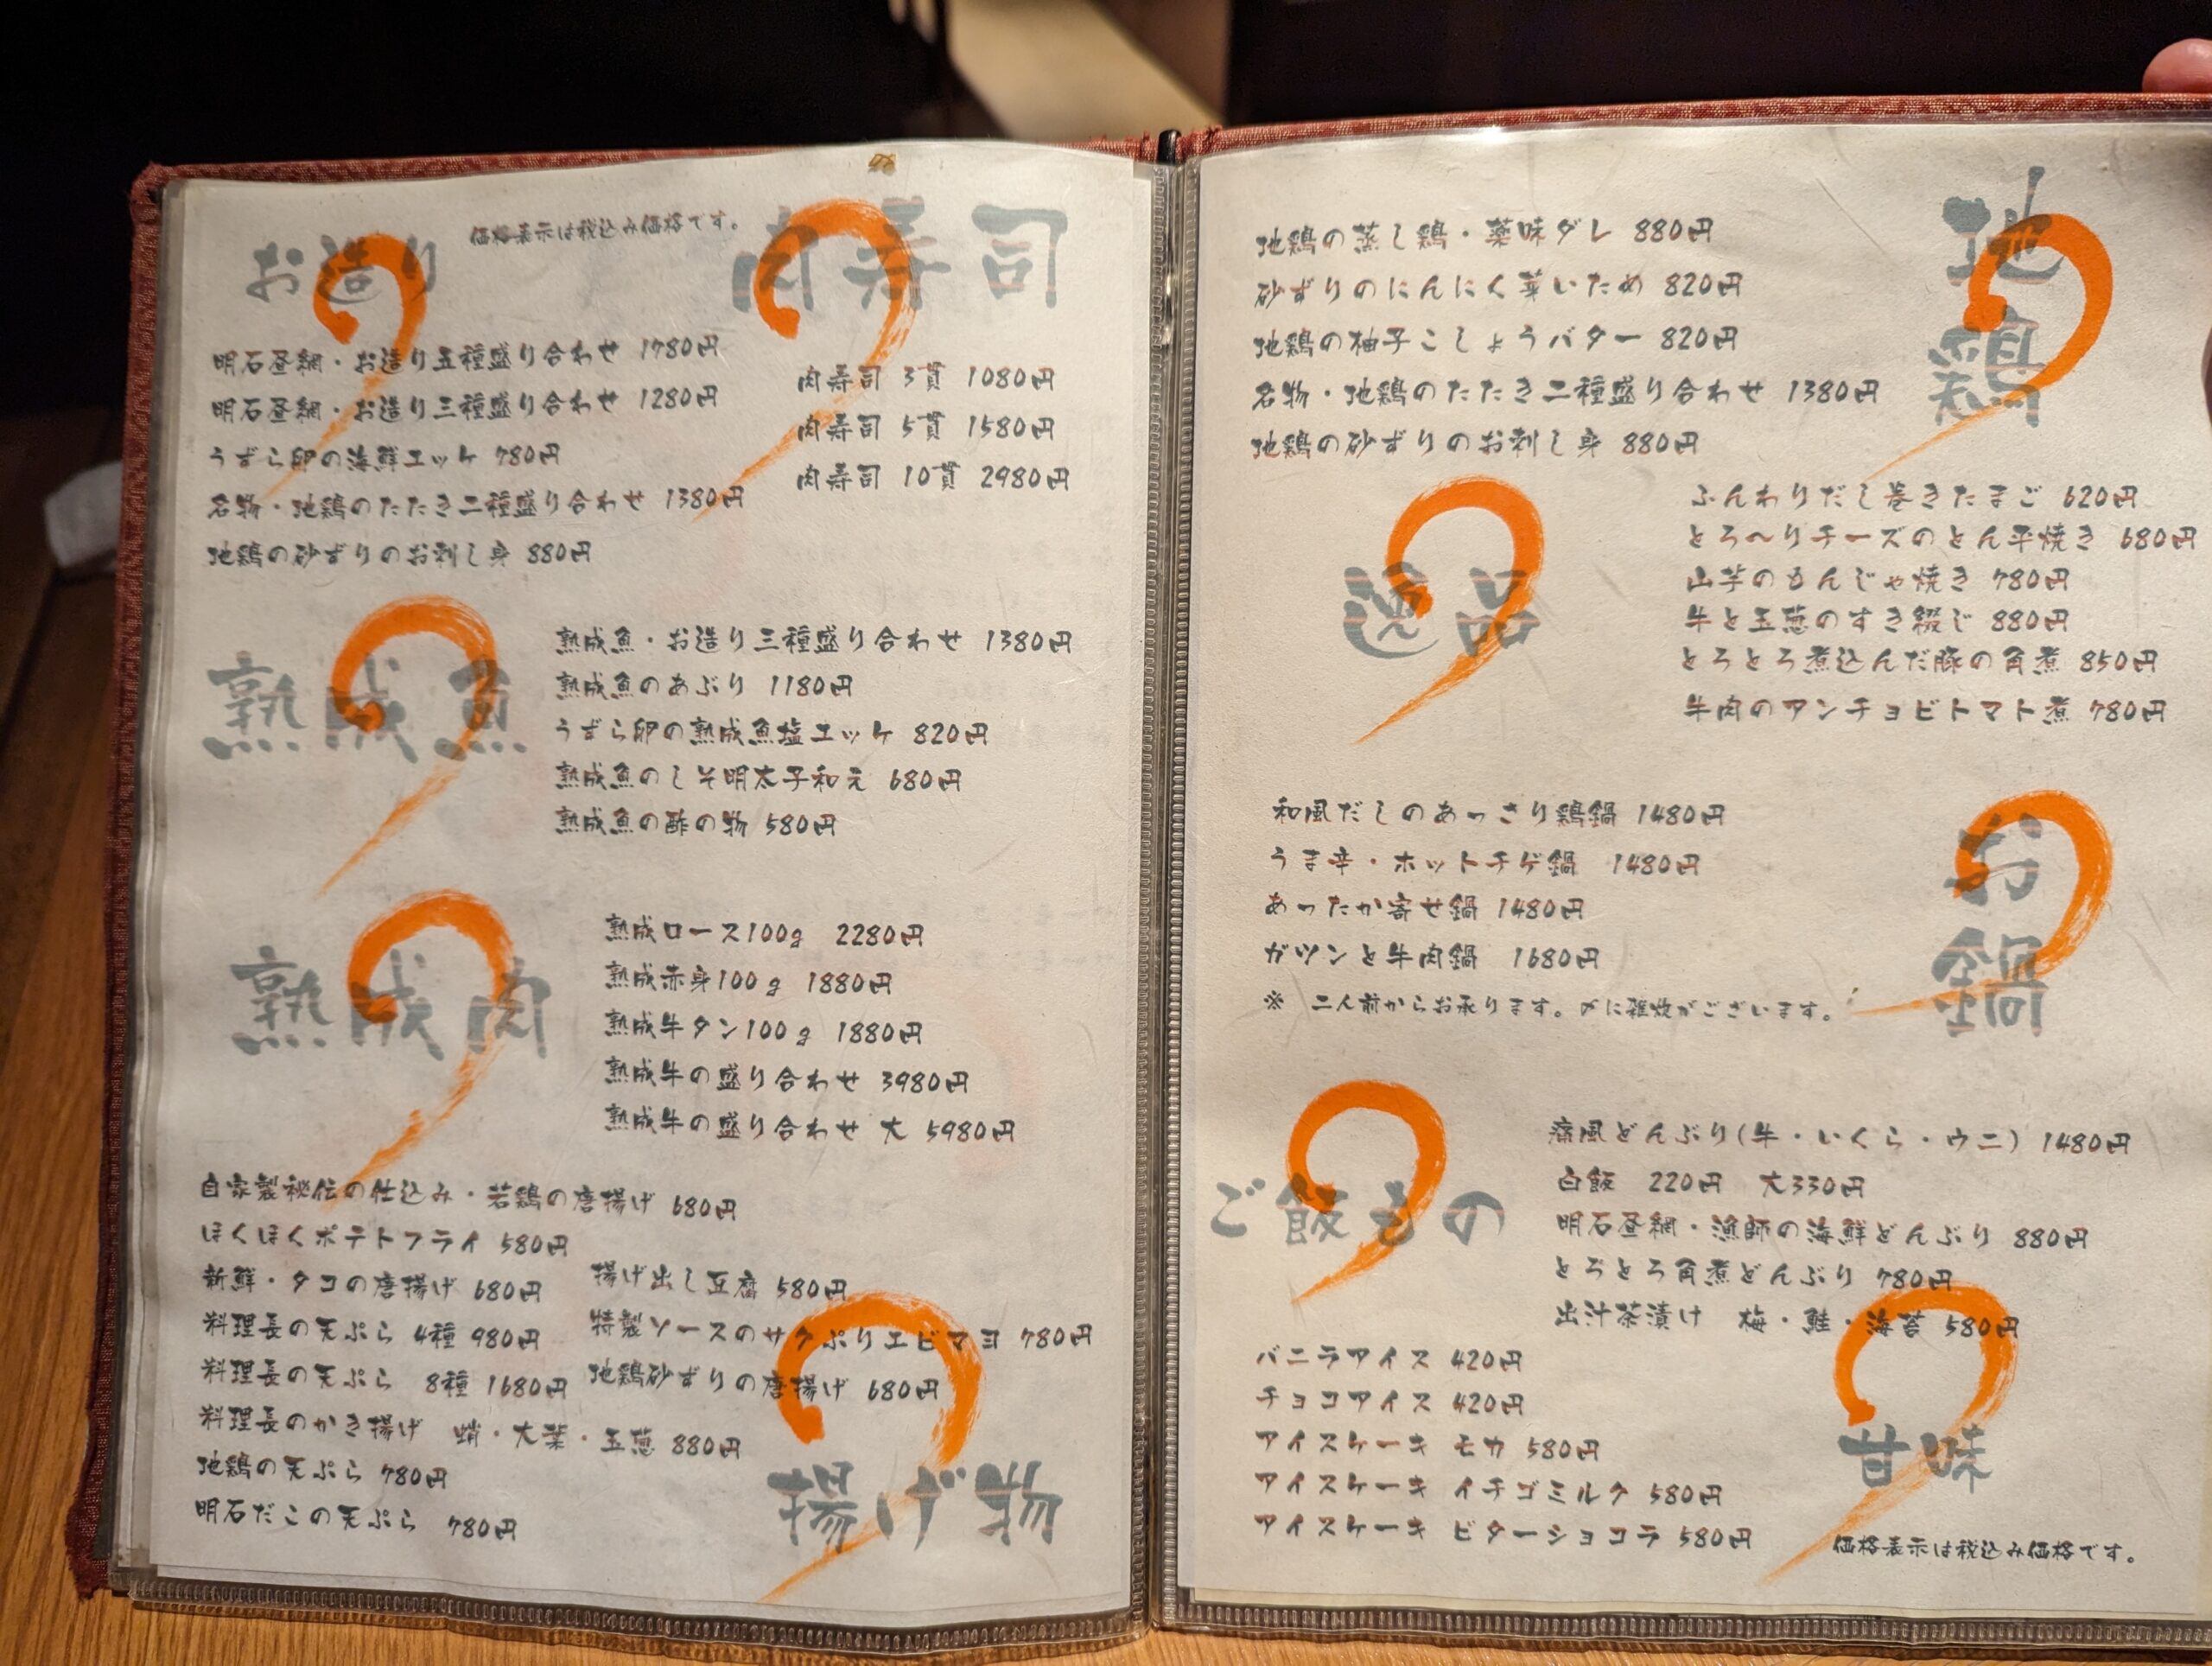 価格表示は税込み価格です。
お造り
明石昼網・お造り五種盛り合わせ 1780円
明石昼網・お造り三種盛り合わせ 1280円
うずら卵の海鮮エッケ 780円
名物・地鶏のたたき二種盛り合わせ 1380円
地鶏の砂ずりのお刺し身 880円
肉寿司
肉寿司 3貫 1080円
肉寿司 5貫 1580円
肉寿司 10貫 2980円
熟成魚
熟成魚・お造り三種盛り合わせ 1380円
熟成魚のあぶり 1180円
うずら卵の熟成魚塩エッケ 820円
熟成魚のしそ明太子和え 680円
熟成魚の酢の物 580円
熟成肉
熟成ロース100g 2280円
熟成赤身100g 1880円
熟成牛タン100g 1880円
熟成牛の盛り合わせ 3980円
熟成牛の盛り合わせ 大 5980円
自家製秘伝の仕込み・若鶏の唐揚げ 680円
ほくほくポテトフライ 580円
新鮮・タコの唐揚げ 680円
料理長の天ぷら 4種 980円
料理長の天ぷら 8種 1680円
料理長のかき揚げ 蛸・大葉・玉葱 880円
地鶏の天ぷら 780円
明石だこの天ぷら 780円
揚げ出し豆腐 580円
特製ソースのサクぷりエビマヨ 780円
地鶏砂ずりの唐揚げ 680円
揚げ物
地鶏
地鶏の蒸し鶏・薬味ダレ 880円
砂ずりのにんにく芽いため 820円
地鶏の柚子こしょうバター 820円
名物・地鶏のたたき二種盛り合わせ 1380円
地鶏の砂ずりのお刺し身 880円
逸品
ふんわりだし巻きたまご 620円
とろ〜りチーズのとん平焼き 680円
山芋のもんじゃ焼き 780円
牛と玉葱のすき綴じ 880円
とろとろ煮込んだ豚の角煮 850円
牛肉のアンチョビトマト煮 780円
お鍋
和風だしのあっさり鶏鍋 1480円
うま辛・ホットチゲ鍋 1480円
あったか寄せ鍋 1480円
ガツンと牛肉鍋 1680円
※ 二人前からお承ります。〆に雑炊がございます。
ご飯もの
痛風どんぶり(牛・いくら・ウニ) 1480円
白飯 220円 大330円
明石昼網・漁師の海鮮どんぶり 880円
とろとろ角煮どんぶり 780円
出汁茶漬け 梅・鮭・海苔 580円
甘味
バニラアイス 420円
チョコアイス 420円
アイスケーキ モカ 580円
アイスケーキ イチゴミルク 580円
アイスケーキ ビターショコラ 580円
価格表示は税込み価格です。